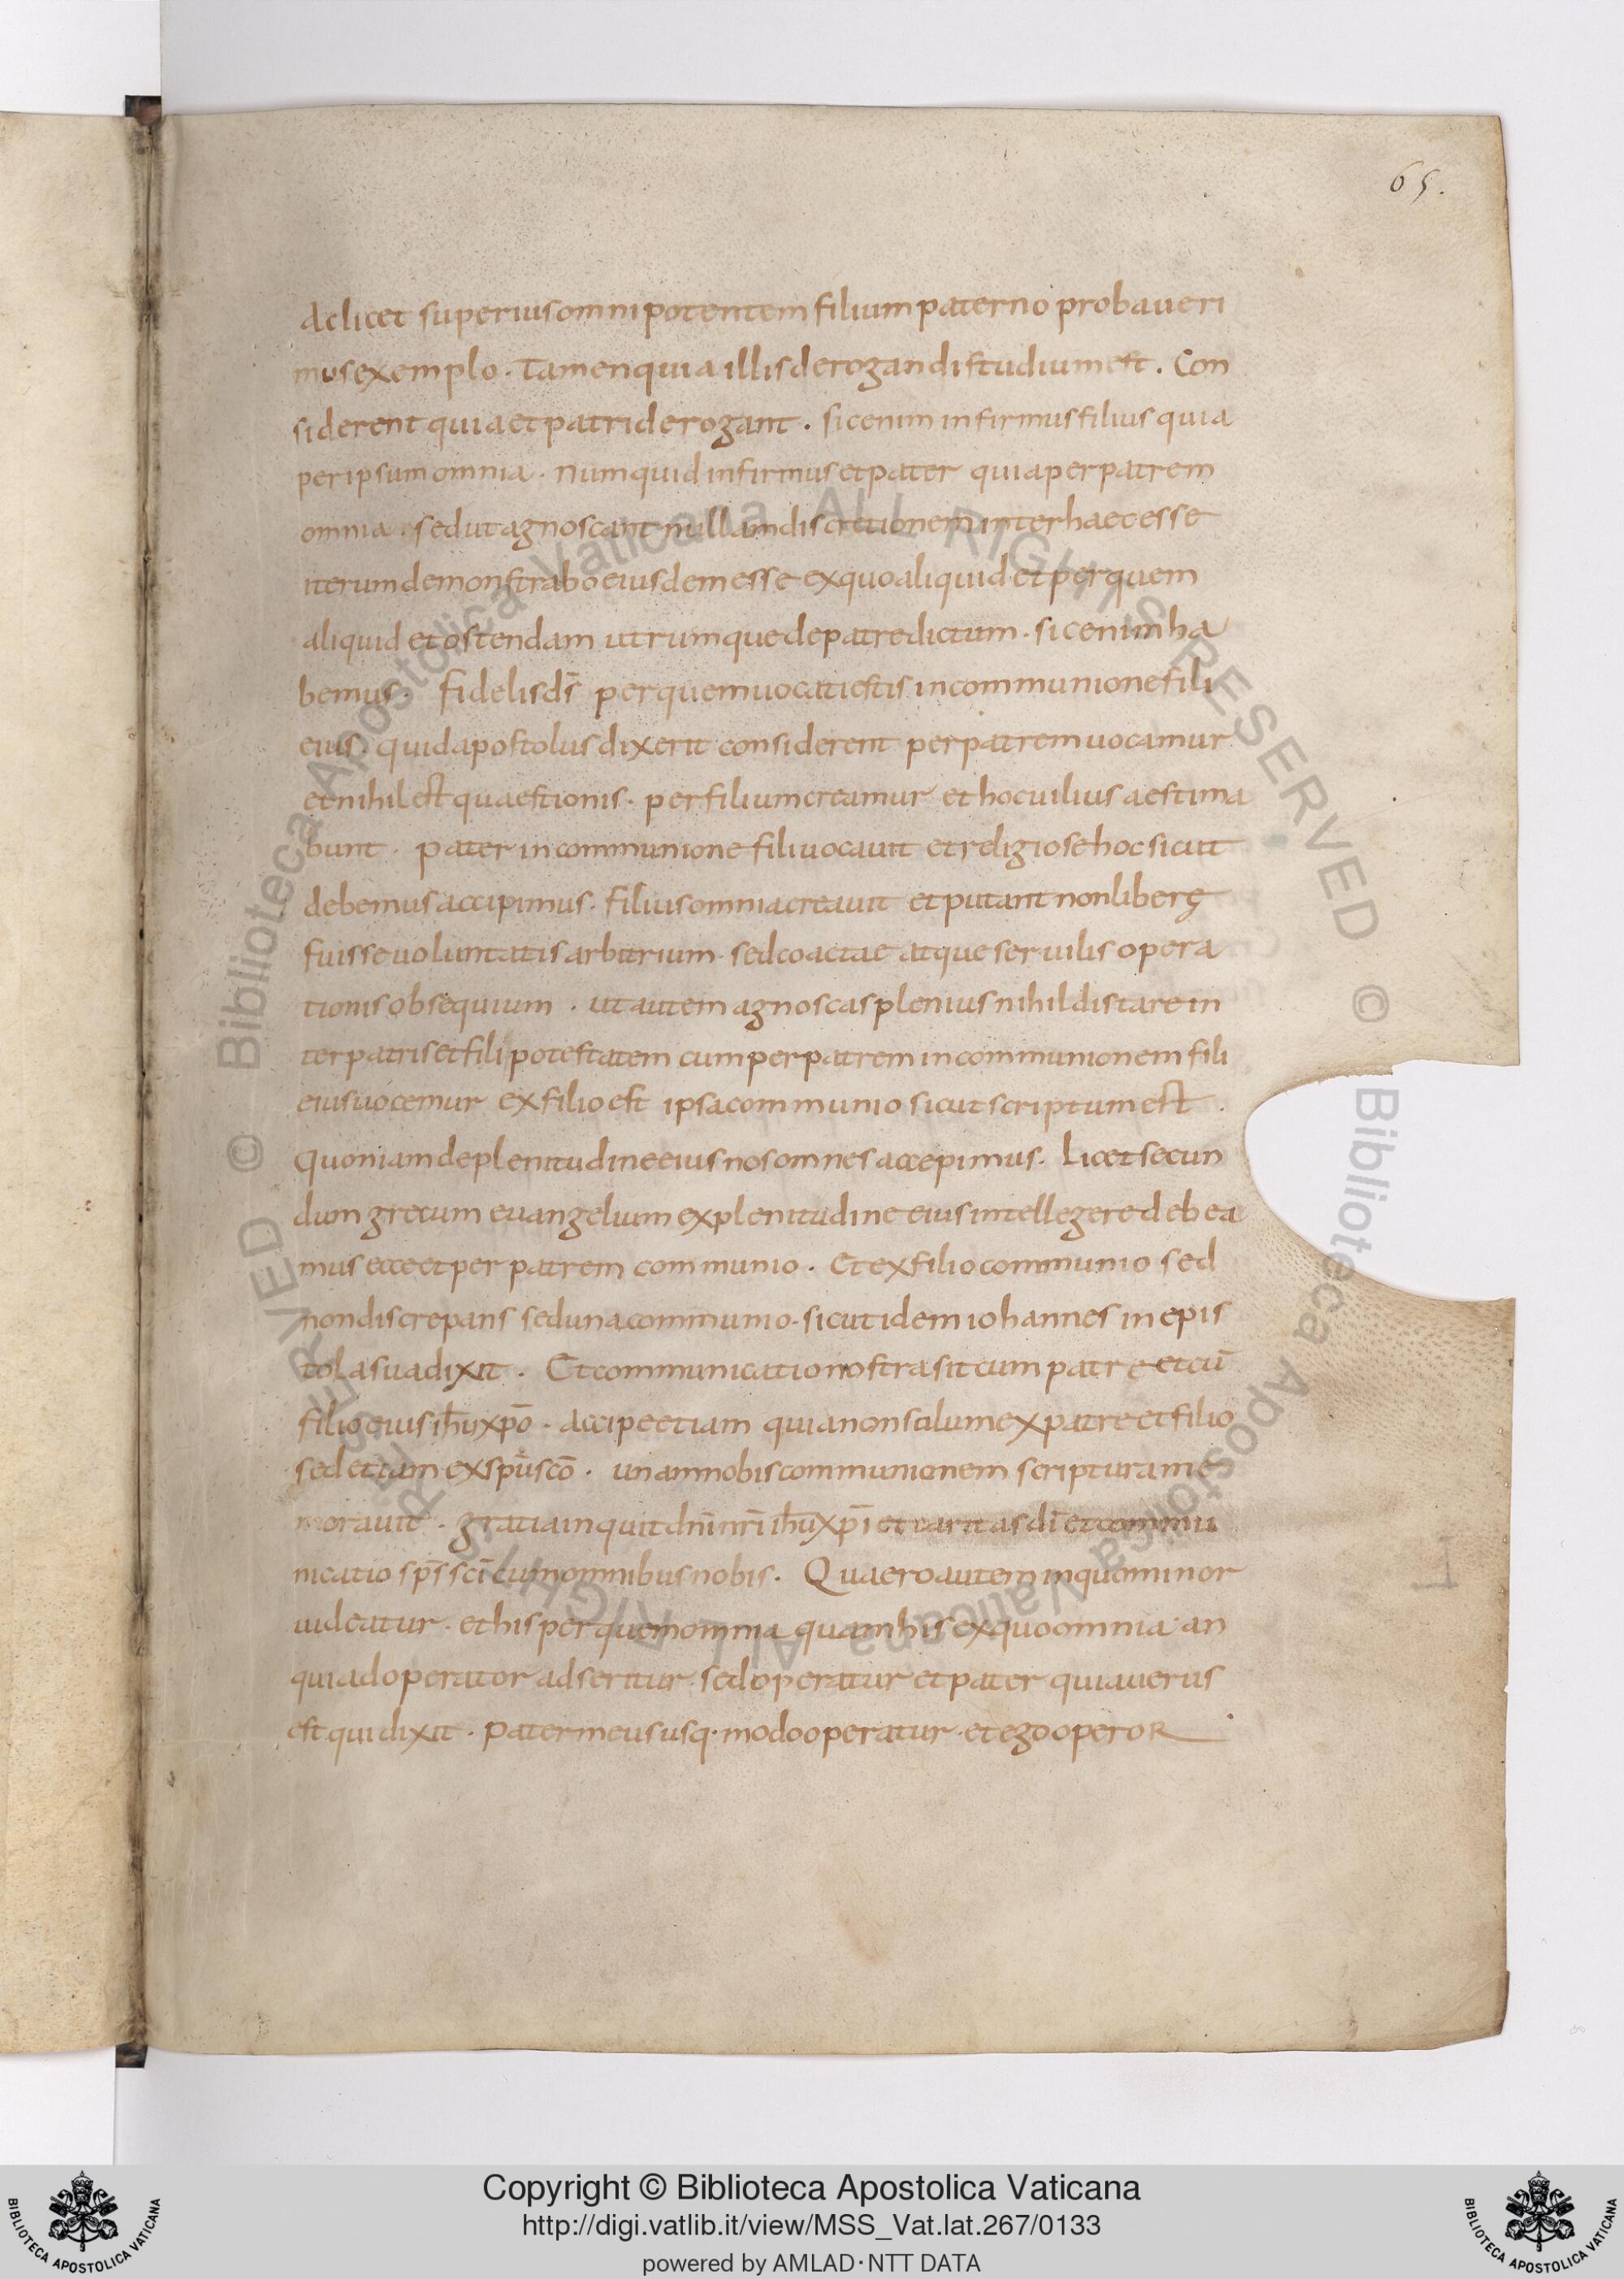 65.
Ac licet superius omnipotentem filium paterno probaueri
mus exemplo. Tamen quia illis derogandi studium est. Con
siderent quia et patri derogant. sic enim infirmus filius quia
per ipsum omnia. numquid infirmus et pater quia per patrem
omnia. sed ut agnoscant nullam discretionem inter haec esse
iterum demonstrabo eiusdem esse ex quo aliquid et per quem
aliquid et ostendam utrumque de patre dictum. sic enim ha
bemus. fidelis ds̄ per quem uocati estis in communione fili
eius. quid apostolus dixerit considerent per patrem uocamur
et nihil est quaestionis. per filium creamur et hoc uilius aestima
bunt. pater in communione fili uocauit et religiose hoc sicut
debemus accipimus. filius omnia creauit et putant non liberę
fuisse uoluntatis arbitrium. sed coactae atque seruilis opera
tionis obsequium. ut autem agnoscas plenius nihil distare in
ter patris et fili potestatem cum per patrem in communionem fili
eius uocemur ex filio est ipsa communio sicut scriptum est.
Quoniam de plenitudine eius nos omnes accepimus. Licet secun
dum grecum euangelium ex plenitudine eius intellegere debea
mus ecce et per patrem communio. Et ex filio communio sed
non discrepans sed una communio. sicut idem iohannes in epis
tola sua dixit. Et communicatio nostra sit cum patre et cū
filio eius ih̄u xp̄o. Accipe etiam quia non solum ex patre et filio
sed etiam ex sp̄u sc̄o. unam nobis communionem scriptura me
morauit. gratia inquit dn̄i nr̄i ih̄u xp̄i et caritas dī et commu
nicatio sp̄s sc̄i cum omnibus nobis. Quaero autem in quo minor
uideatur. et his per quem omnia quam his ex quo omnia. an
quia doperator adseritur. sed operatur et pater quia uerus
est qui dixit. pater meus usq. modo operatur. et ego operor
© Biblioteca Apostolica Vaticana ALL RIGHTS RESERVED © Biblioteca Apostolica Vaticana ALL RIGHTS RESERVED
Copyright © Biblioteca Apostolica Vaticana
http://digi.vatlib.it/view/MSS_Vat.lat.267/0133
powered by AMLAD · NTT DATA
BIBLIOTECA APOSTOLICA VATICANA
BIBLIOTECA APOSTOLICA VATICANA